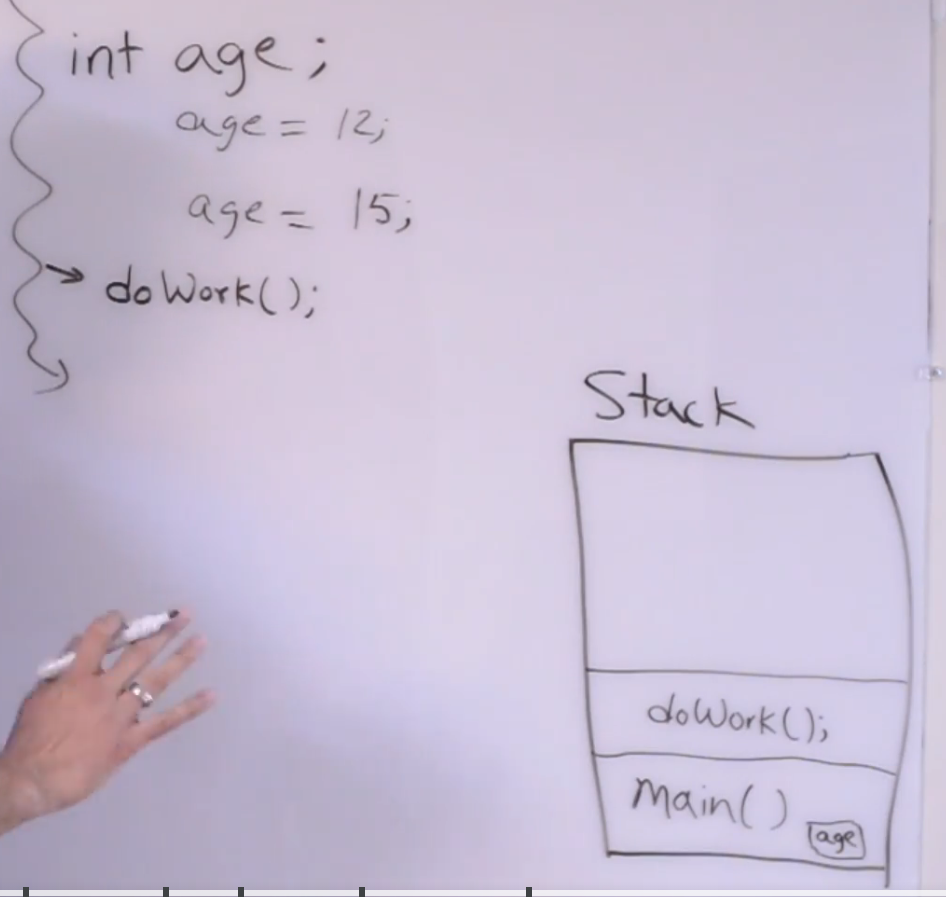 int age;
age = 12;
age = 15;
doWork();
Stack
doWork();
Main()
age